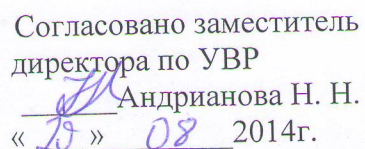 Согласовано заместитель
директора по УВР
Андрианова Н. Н.
« » 08 2014г.